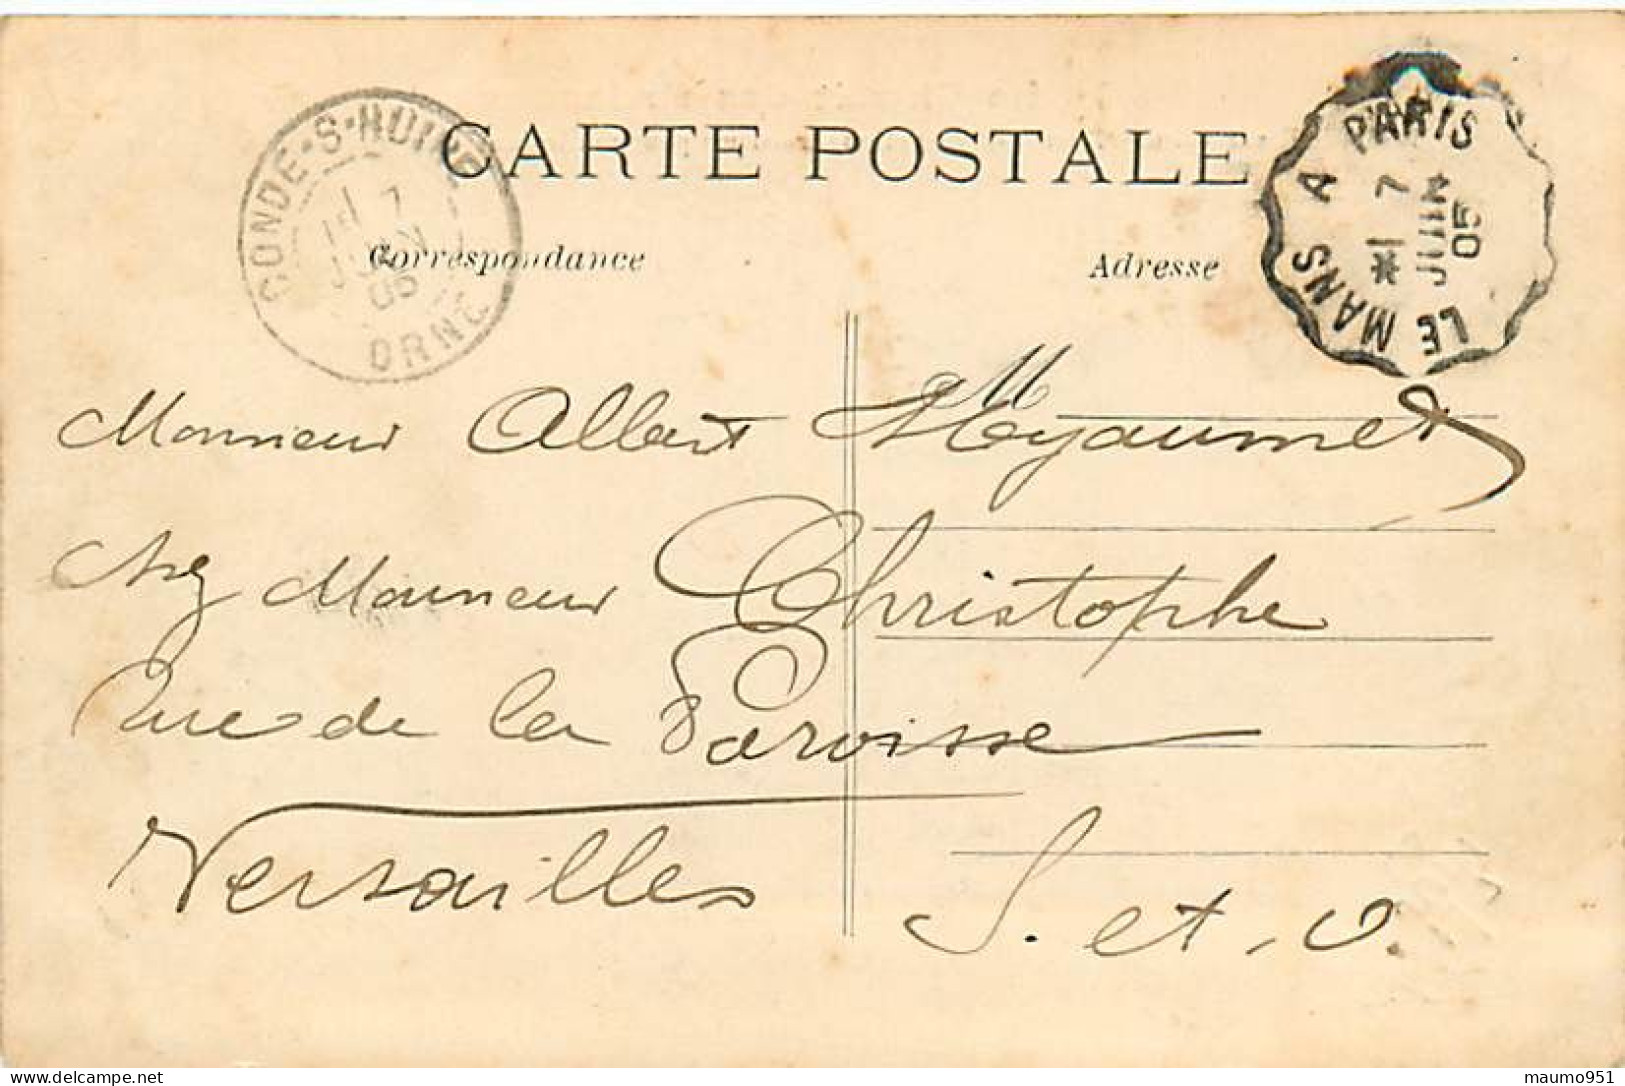 CARTE POSTALE
CONDE-S-HUISNE
7
JUIN
05
ORNE
Correspondance
Adresse
LE MANS A PARIS
*1 7
JUIN
05
Monsieur Albert
Chez Monsieur Christophe
Rue de la Paroisse
Versailles
S. et. O.
delcampe.net
maumo951